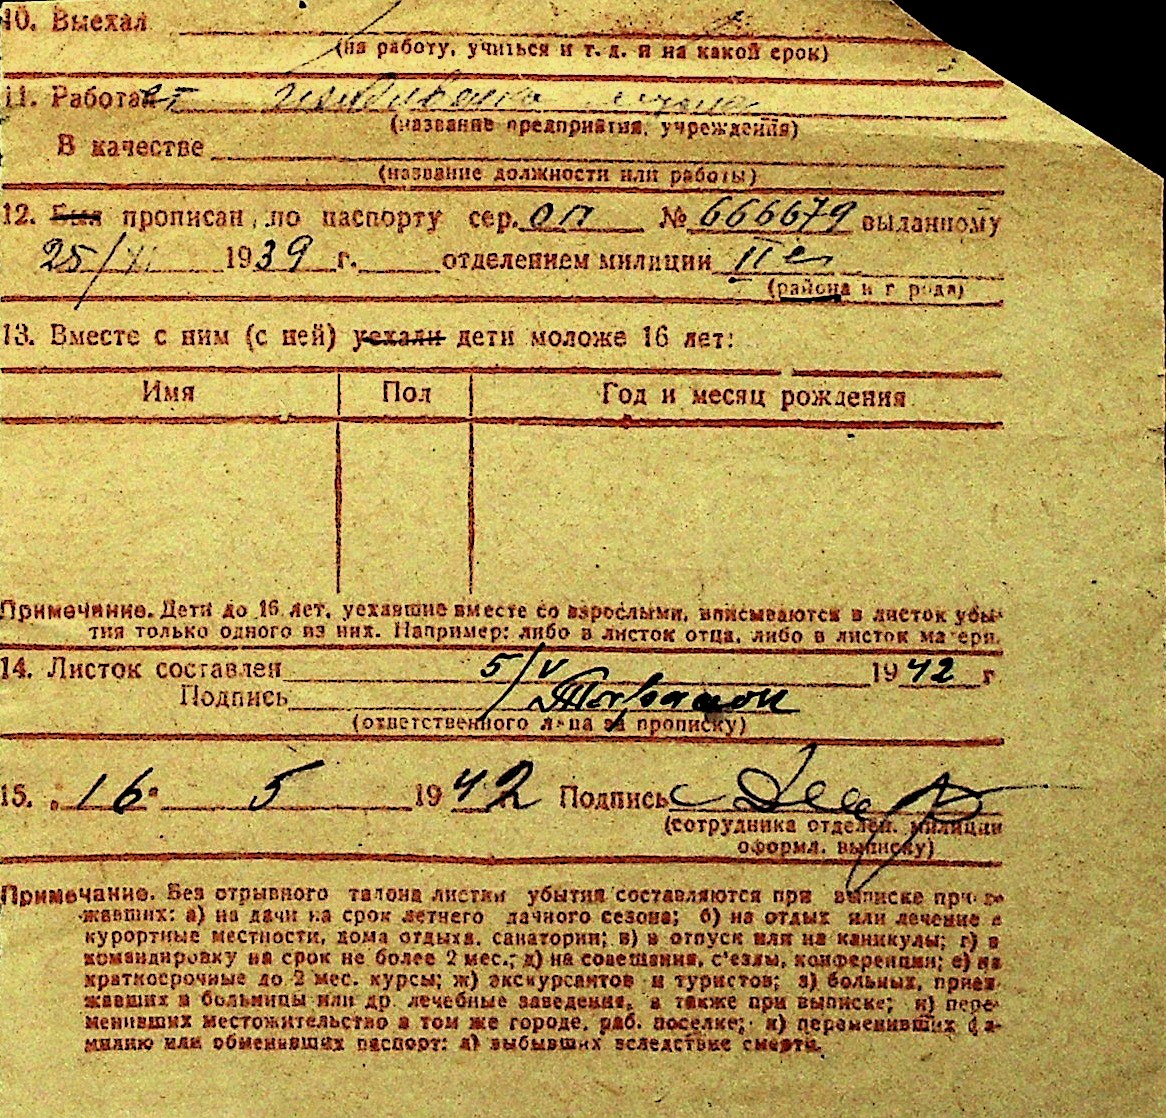 10. Выехал
(на работу, учиться и т. д. и на какой срок)
11. Работает
(название предприятия, учреждения)
В качестве
(название должности или работы)
12. Был прописан по паспорту сер. ОП № 666679 выданному
25/XI 1939 г. отделением милиции
(района и города)
13. Вместе с ним (с ней) уехали дети моложе 16 лет:
Имя Пол Год и месяц рождения
Примечание. Дети до 16 лет, уехавшие вместе со взрослыми, вписываются в листок убы-
тия только одного из них. Например: либо в листок отца, либо в листок матери.
14. Листок составлен 5/V 1942 г
Подпись
(ответственного лица за прописку)
15. „16" 5 1942 Подпись
(сотрудника отделен. милиции
оформл. выписку)
Примечание. Без отрывного талона листки убытия составляются при выписке приез-
жавших: а) на дачи на срок летнего дачного сезона; б) на отдых или лечение в
курортные местности, дома отдыха, санатории; в) в отпуск или на каникулы; г) в
командировку на срок не более 2 мес.; д) на совещания, с'езды, конференции; е) на
краткосрочные до 2 мес. курсы; ж) экскурсантов и туристов; з) больных, приез-
жавших в больницы или др. лечебные заведения, а также при выписке; и) пере-
менивших местожительство в том же городе, раб. поселке; к) переменивших фа-
милию или обменивших паспорт; л) выбывших вследствие смерти.